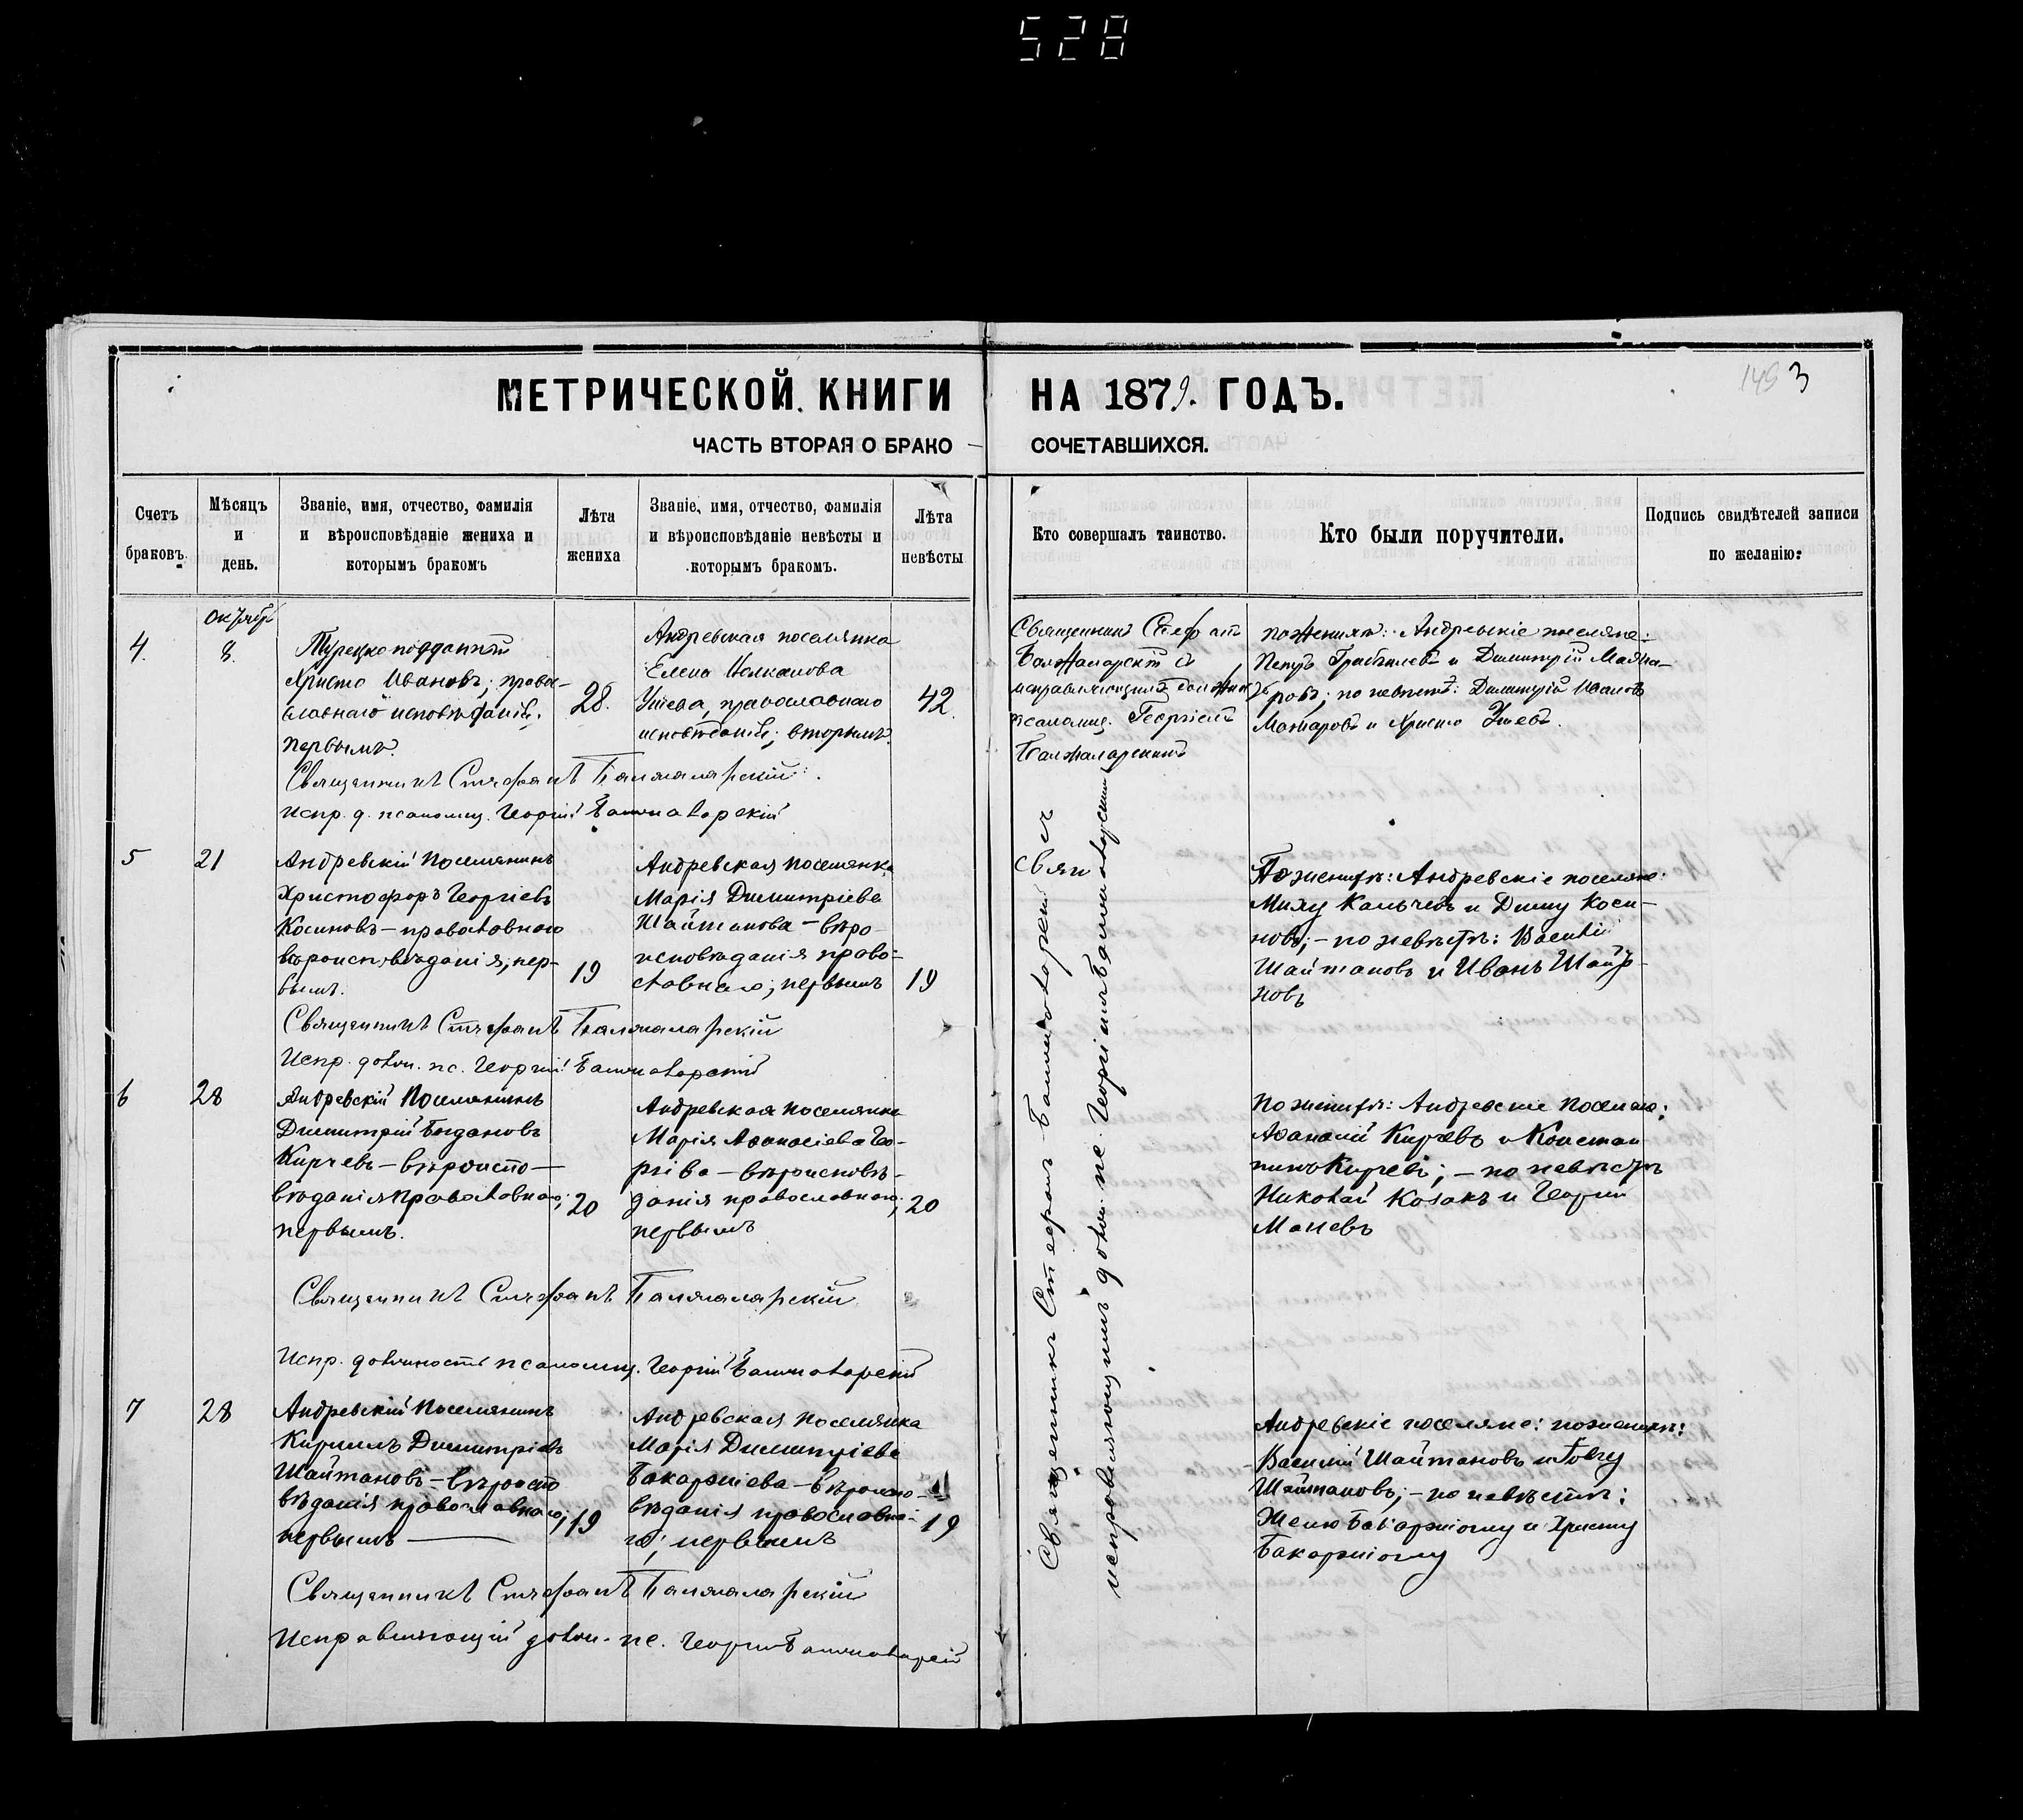 528
МЕТРИЧЕСКОЙ КНИГИ НА 1879. ГОДЪ.
1453
ЧАСТЬ ВТОРАЯ О БРАКО - СОЧЕТАВШИХСЯ.
Счетъ браковъ.
Мѣсяцъ и день.
Званіе, имя, отчество, фамилія
и вѣроисповѣданіе жениха и
которымъ бракомъ
Лѣта жениха
Званіе, имя, отчество, фамилія
и вѣроисповѣданіе невѣсты и
которымъ бракомъ.
Лѣта невѣсты
Кто совершалъ таинство.
Кто были поручители.
Подпись свидѣтелей записи
по желанію:
Октябрь
4.
8.
Турецкоподданный
Христо Ивановъ; право-
славнаго исповѣданія.
первымъ.
28.
Андревская поселянка
Елена
Ушева, православнаго
исповѣданія; вторымъ.
42.
Священникъ Стефанъ
Балжаларскій
исправляющій должн.
псаломщ. Георгій
Балжаларский
по женихѣ: Андревскіе поселяне:
Петръ и Димитрій
по невѣстѣ: Димитрій Ивановъ
и Христо Ушевъ.
Священникъ Стефанъ Балжаларскій.
Испр. д. псаломщ. Георгій Балжаларскій
5
21
Андревскій Поселянинъ
Христофоръ Георгіевъ
Косиновъ - православнаго
вѣроисповѣданія; пер-
вымъ.
19
Андревская поселянка
Марія Димитріева
Шайтанова - вѣро-
исповѣданія право-
славнаго; первымъ
19
По женихѣ: Андревскіе поселяне:
Миху Калчевъ и Диму Коси-
новъ; - по невѣстѣ: Василій
Шайтановъ и Иванъ Шайта-
новъ
Священникъ Стефанъ Балжаларскій
Испр. долж. пс. Георгій Балжаларскій
6
28
Андревскій Поселянинъ
Димитрій Богдановъ
Кирчевъ - вѣроиспо-
вѣданія православнаго;
первымъ.
20
Андревская поселянка
Марія Аѳанасіева Гео-
ргіева - вѣроисповѣ-
данія православнаго;
первымъ
20
По женихѣ: Андревскіе Поселяне:
Аѳанасій Кирчевъ и Констан
тинъ Кирчевъ; - по невѣстѣ
Николай Козакъ и Георгій
Маневъ
Священникъ Стефанъ Балжаларскій
Испр. должность псаломщ. Георгій Балжаларскій
7
28
Андревскій Поселянинъ
Кириллъ Димитріевъ
Шайтановъ - вѣроиспо
вѣданія православнаго;
первымъ
19
Андревская Поселянка
Марія Димитріева
Бакаржіева - вѣроиспо-
вѣданія православна-
го; первымъ
19
Андревскіе поселяне: по женихѣ:
Василій Шайтановъ и
Шайтановъ; - по невѣстѣ:
Желю Бакаржіоглу и Христу
Бакаржіоглу
Священникъ Стефанъ Балжаларскій
Исправляющій долж. пс. Георгій Балжаларскій
Священникъ Стефанъ Балжаларскій съ
исправляющимъ долж. пс. Георгіемъ Балжаларскимъ